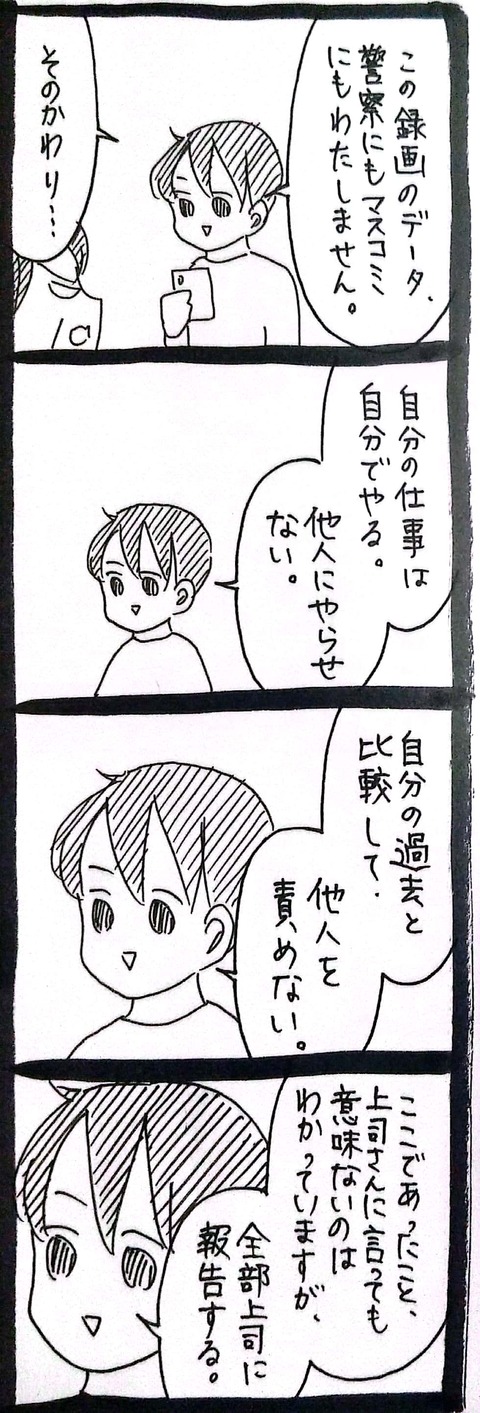 この録画のデータ、
警察にもマスコミ
にもわたしません。
そのかわり…
自分の仕事は
自分でやる。
他人にやらせ
ない。
自分の過去と
比較して、
他人を
責めない。
ここであったこと、
上司さんに言っても
意味ないのは
わかっていますが、
全部上司に
報告する。